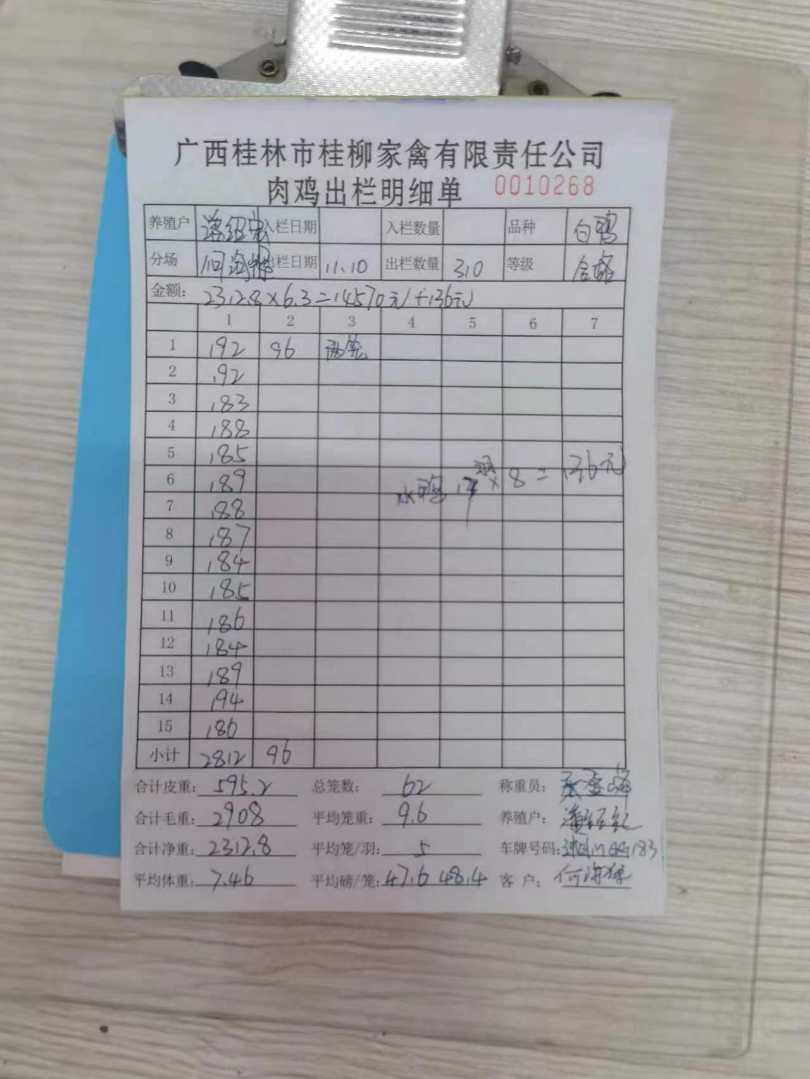 广西桂林市桂柳家禽有限责任公司
肉鸡出栏明细单 0010268
养殖户 入栏日期 入栏数量 品种 白鸭
分场 出栏日期 11.10 出栏数量 310 等级 合格
金额: 2312.8×6.3=14570元+136元
1 2 3 4 5 6 7
1 192 96 两笼
2 192
3 183
4 188
5 185
6 189
7 188
8 187
9 184
10 185
11 186
12 184
13 189
14 194
15 186
水鸭 17 × 8 = 136元
小计 2812 96
合计皮重: 595.2 总笼数: 62 称重员:
合计毛重: 2908 平均笼重: 9.6 养殖户:
合计净重: 2312.8 平均笼/羽: 5 车牌号码:
平均体重: 7.46 平均磅/笼: 47.6 48.4 客户: